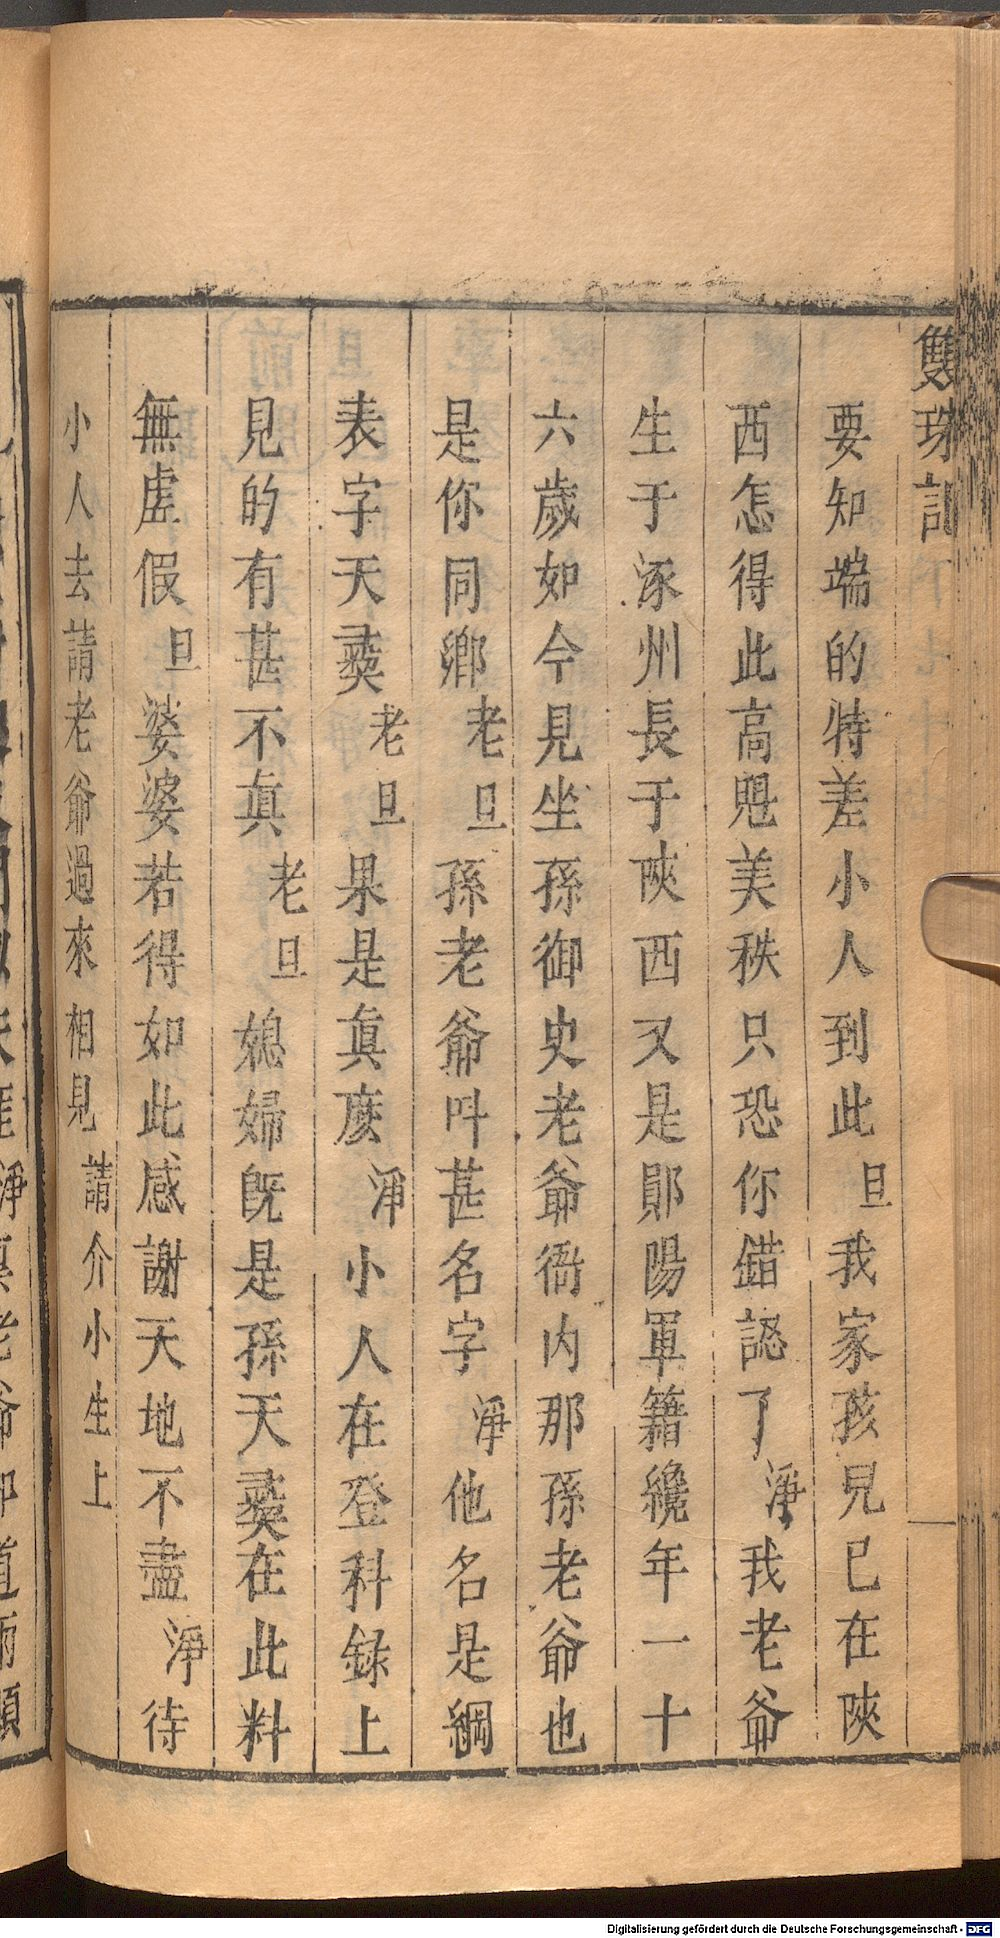 雙珠記
要知端的特差小人到此旦我家孩兒已在陝
西怎得此高魁美秩只恐你錯認了淨我老爺
生于涿州長于陝西又是鄖陽軍籍纔年一十
六歲如今見坐孫御史老爺衙内那孫老爺也
是你同鄉老旦孫老爺呌甚名字淨他名是綱
表字天彝老旦果是眞麽淨小人在登科錄上
見的有甚不眞老旦媳婦旣是孫天彝在此料
無虛假旦婆婆若得如此感謝天地不盡淨待
小人去請老爺過來相見請介小生上
Digitalisierung gefördert durch die Deutsche Forschungsgemeinschaft - DFG